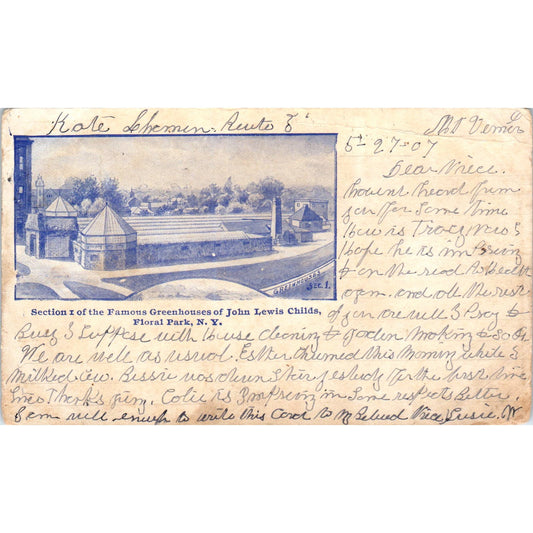 Kate Route
Mt Vernon
5th 27-07
Dear Niece.
havent heard from
you for some time
how is Tracy now I
hope he is improving
& on the road to health
again. and all the rest
GREENHOUSES
SEC. 1.
Section I of the Famous Greenhouses of John Lewis Childs,
Floral Park, N. Y.
of you are well I
Busy I suppose with house cleaning & garden making & So On
We are well as usual. Esther churned this morning while I
milked cow. Bessie was down Stairs yesterday for the first time
Since improving in Some respects Better.
I am well enough to write this Card to my Niece Susie. W